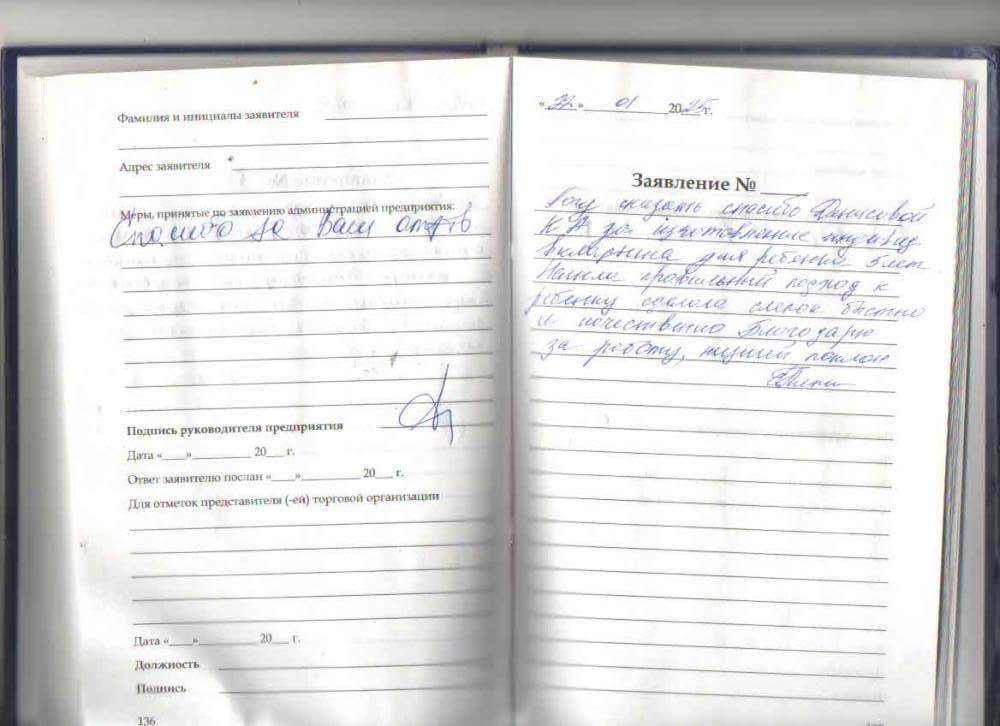 Фамилия и инициалы заявителя
Адрес заявителя
Меры, принятые по заявлению администрацией предприятия:
Спасибо за Ваш отзыв
Подпись руководителя предприятия
Дата «____»__________ 20___ г.
Ответ заявителю послан «____»__________ 20___ г.
Для отметок представителя (-ей) торговой организации
Дата «____»__________ 20___ г.
Должность
Подпись
136
01 2025г.
Заявление № ____
Хочу сказать спасибо Денисовой
К А за изготовление индивид
вкладыша для ребенка 5 лет
Нашла правильный подход к
ребенку сделала слепок быстро
и качественно Благодарю
за работу, низкий поклон